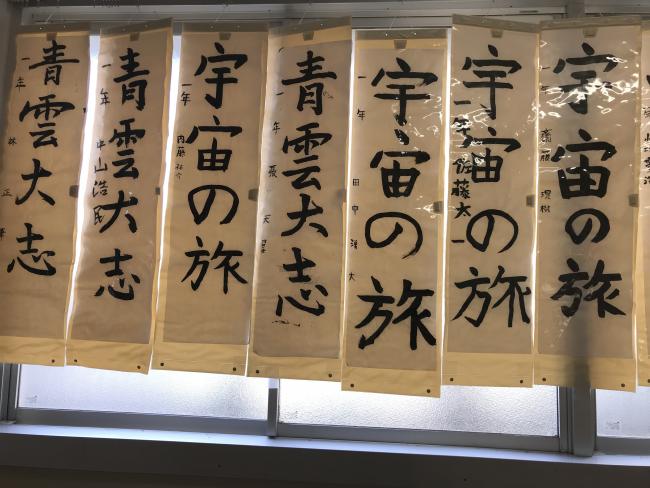 青雲大志
一年 林 正
青雲大志
一年 中山浩
宇宙の旅
一年 内藤祐介
青雲大志
一年 張 天
宇宙の旅
一年 田中 大
宇宙の旅
一年 佐藤太一
宇宙の旅
一年 樹